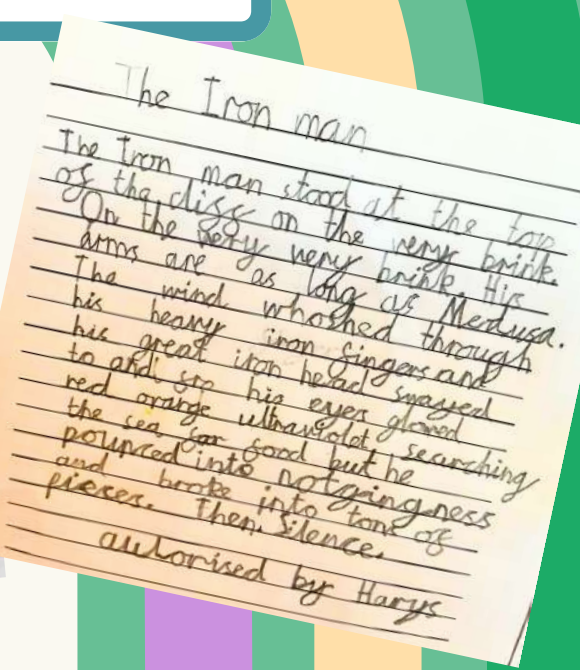 The Iron man
The Iron man stood at the top
of the cliff on the very brink.
On the very very brink. His
arms are as long as Medusa.
The wind whoshed through
his heavy iron fingers and
his great iron head swayed
to and fro his eyes glowed
red orange ultraviolet searching
the sea for food but he
pounced into notgingness
and broke into tons of
pieces. Then. Silence.
autorised by Harys